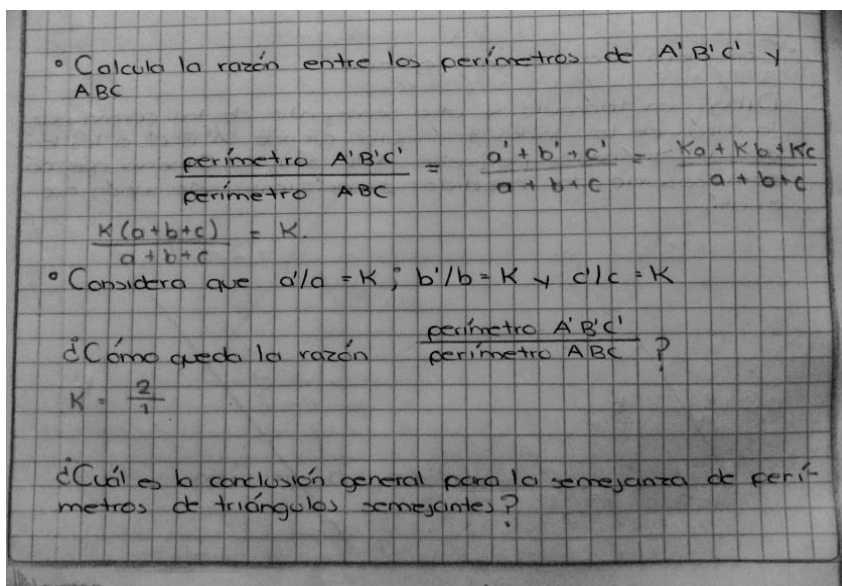 ° Calcula la razón entre los perímetros de A' B' C' y
ABC
perímetro A'B'C' / perímetro ABC = a' + b' + c' / a + b + c = Ka + Kb + Kc / a + b + c
K(a+b+c) / a+b+c = K.
° Considera que a'/a = K ; b'/b = K y c'/c = K
¿Cómo queda la razón perímetro A'B'C' / perímetro ABC ?
K = 2/1
¿Cuál es la conclusión general para la semejanza de perí-
metros de triángulos semejantes?